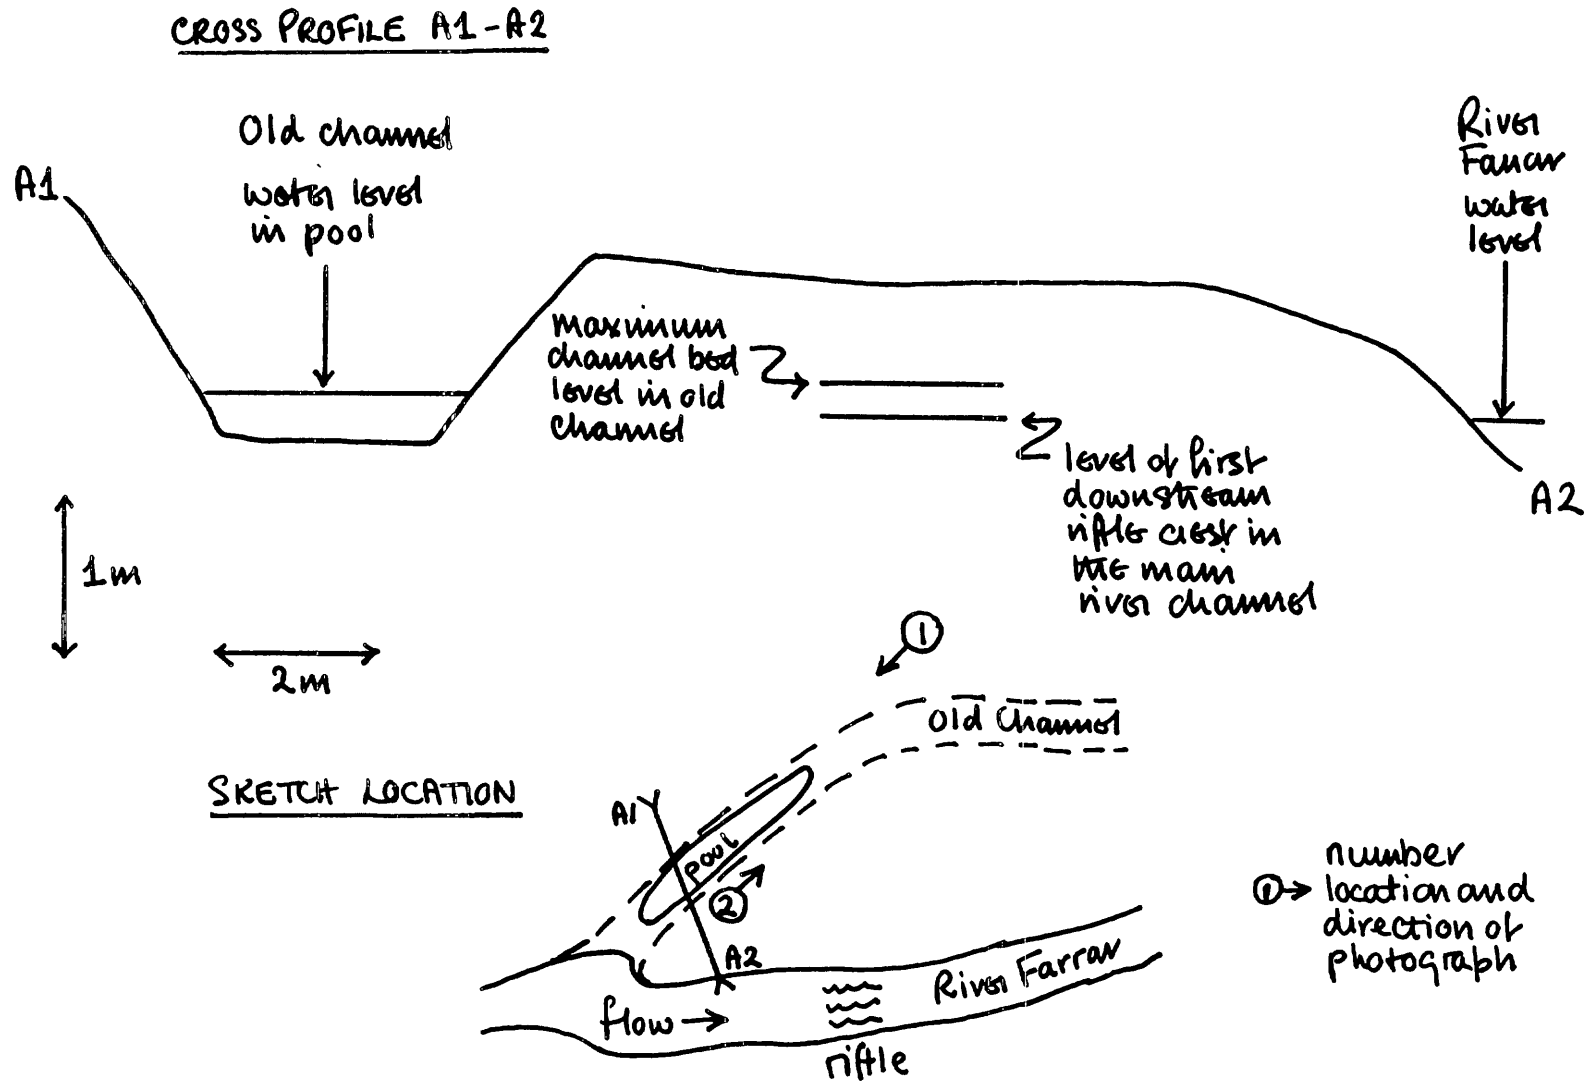 CROSS PROFILE A1-A2
Old channel
water level
in pool
A1
River
Farrar
water
level
maximum
channel bed
level in old
channel
level of first
downstream
riffle crest in
the main
river channel
A2
1m
2m
1
Old Channel
SKETCH LOCATION
A1
pool
2
A2
River Farrar
flow
riffle
number
1 location and
direction of
photograph